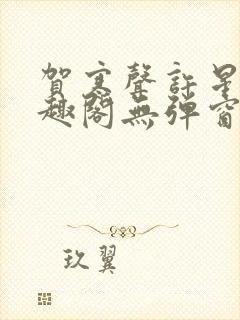 賀寒聲許星
趣閣無彈窗
玖翼